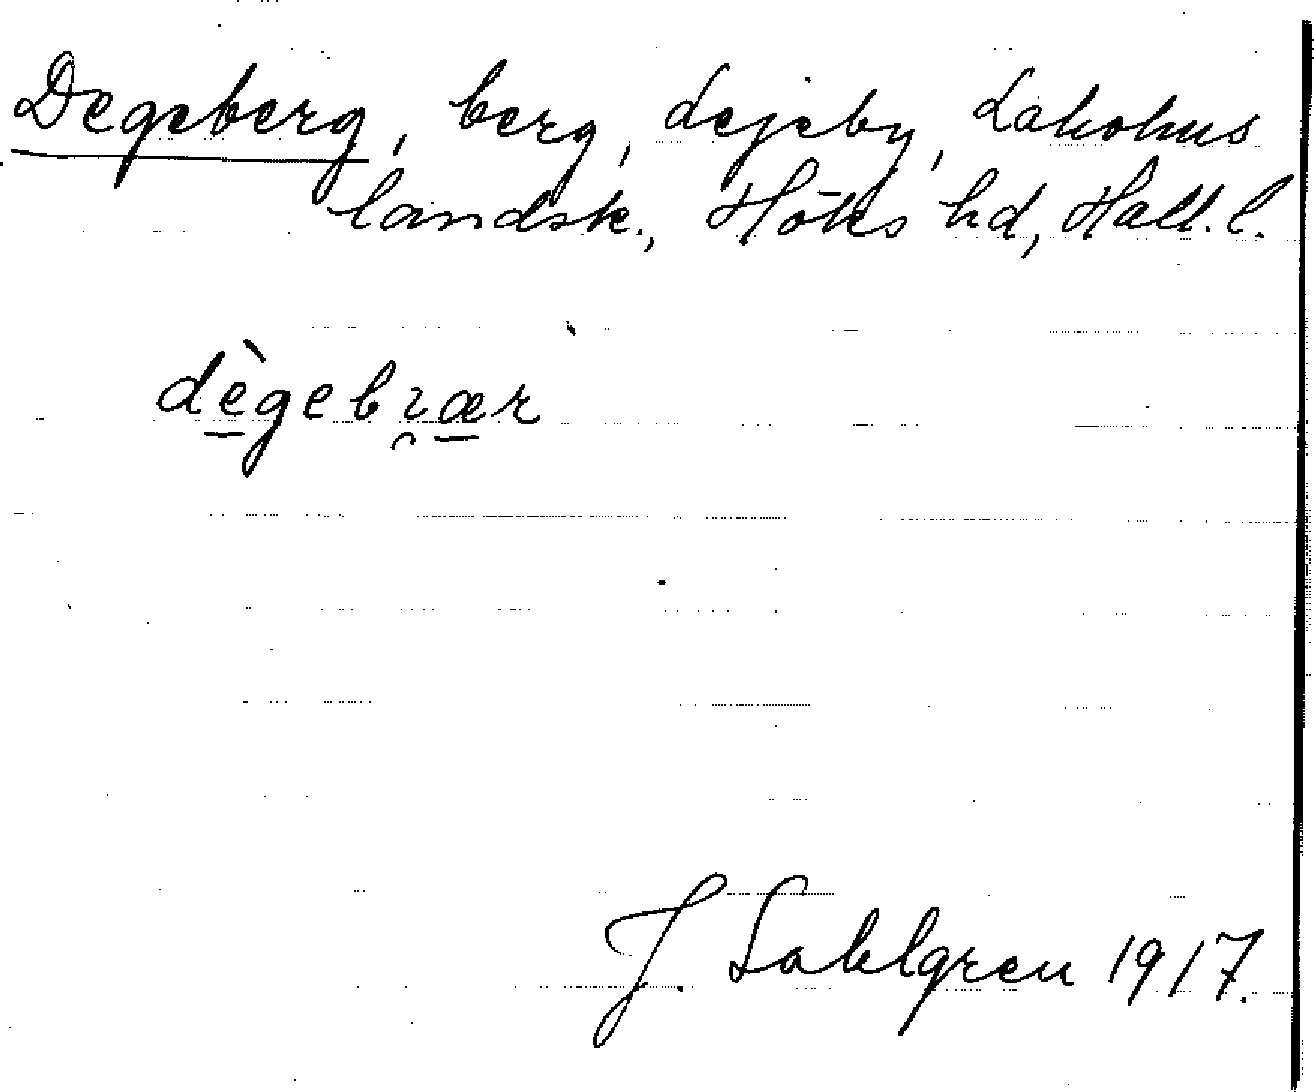 Degeberg, berg, Dejeby, Laholms
landsk., Höks hd, Hall. l.
dègebrær
J. Sahlgren 1917.